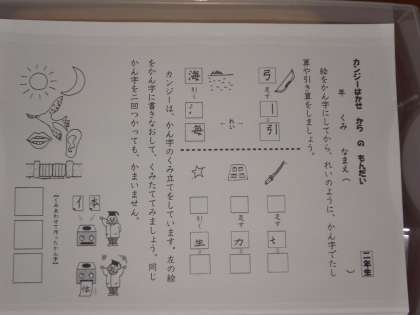 カンジーはかせ から の もんだい
二年生
年 くみ なまえ（ ）
絵をかん字にしてから、れいのように、かん字でたし
算や引き算をしましょう。
弓
足す
｜
引
れい
海
引く
氵
毎
足す
七
足す
力
引く
生
カンジーは、かん字のくみ立てをしています。左の絵
をかん字に書きなおして、くみたててみましょう。同じ
かん字を二回つかっても、かまいません。
イ
本
体
【くみあわせて作ったかん字】